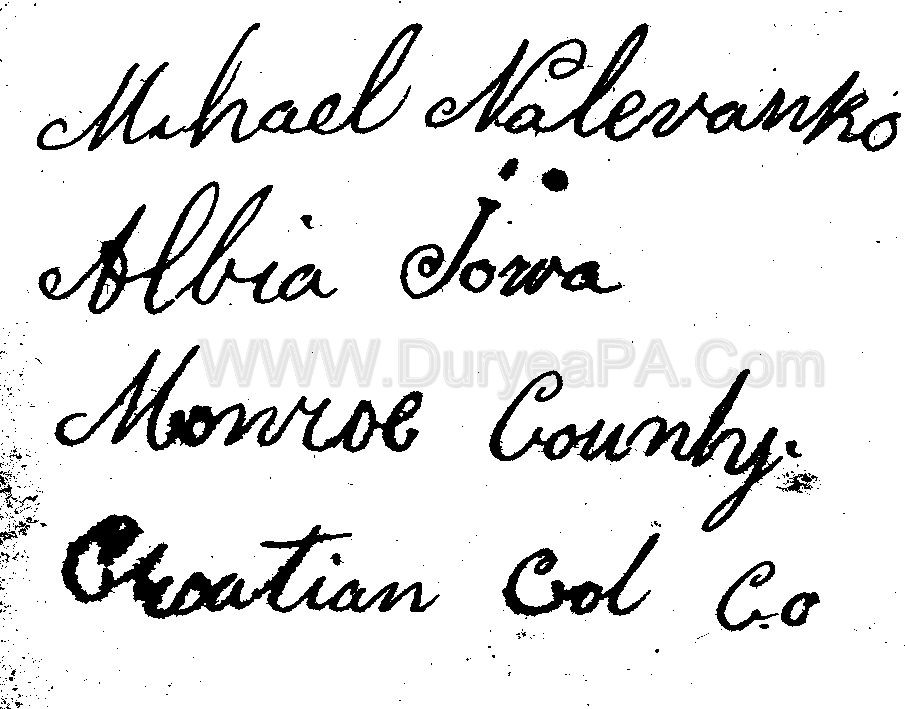 Mihael Nalevanko
Albia Iowa
WWW.DuryeaPA.Com
Monroe County.
Croatian Col Co